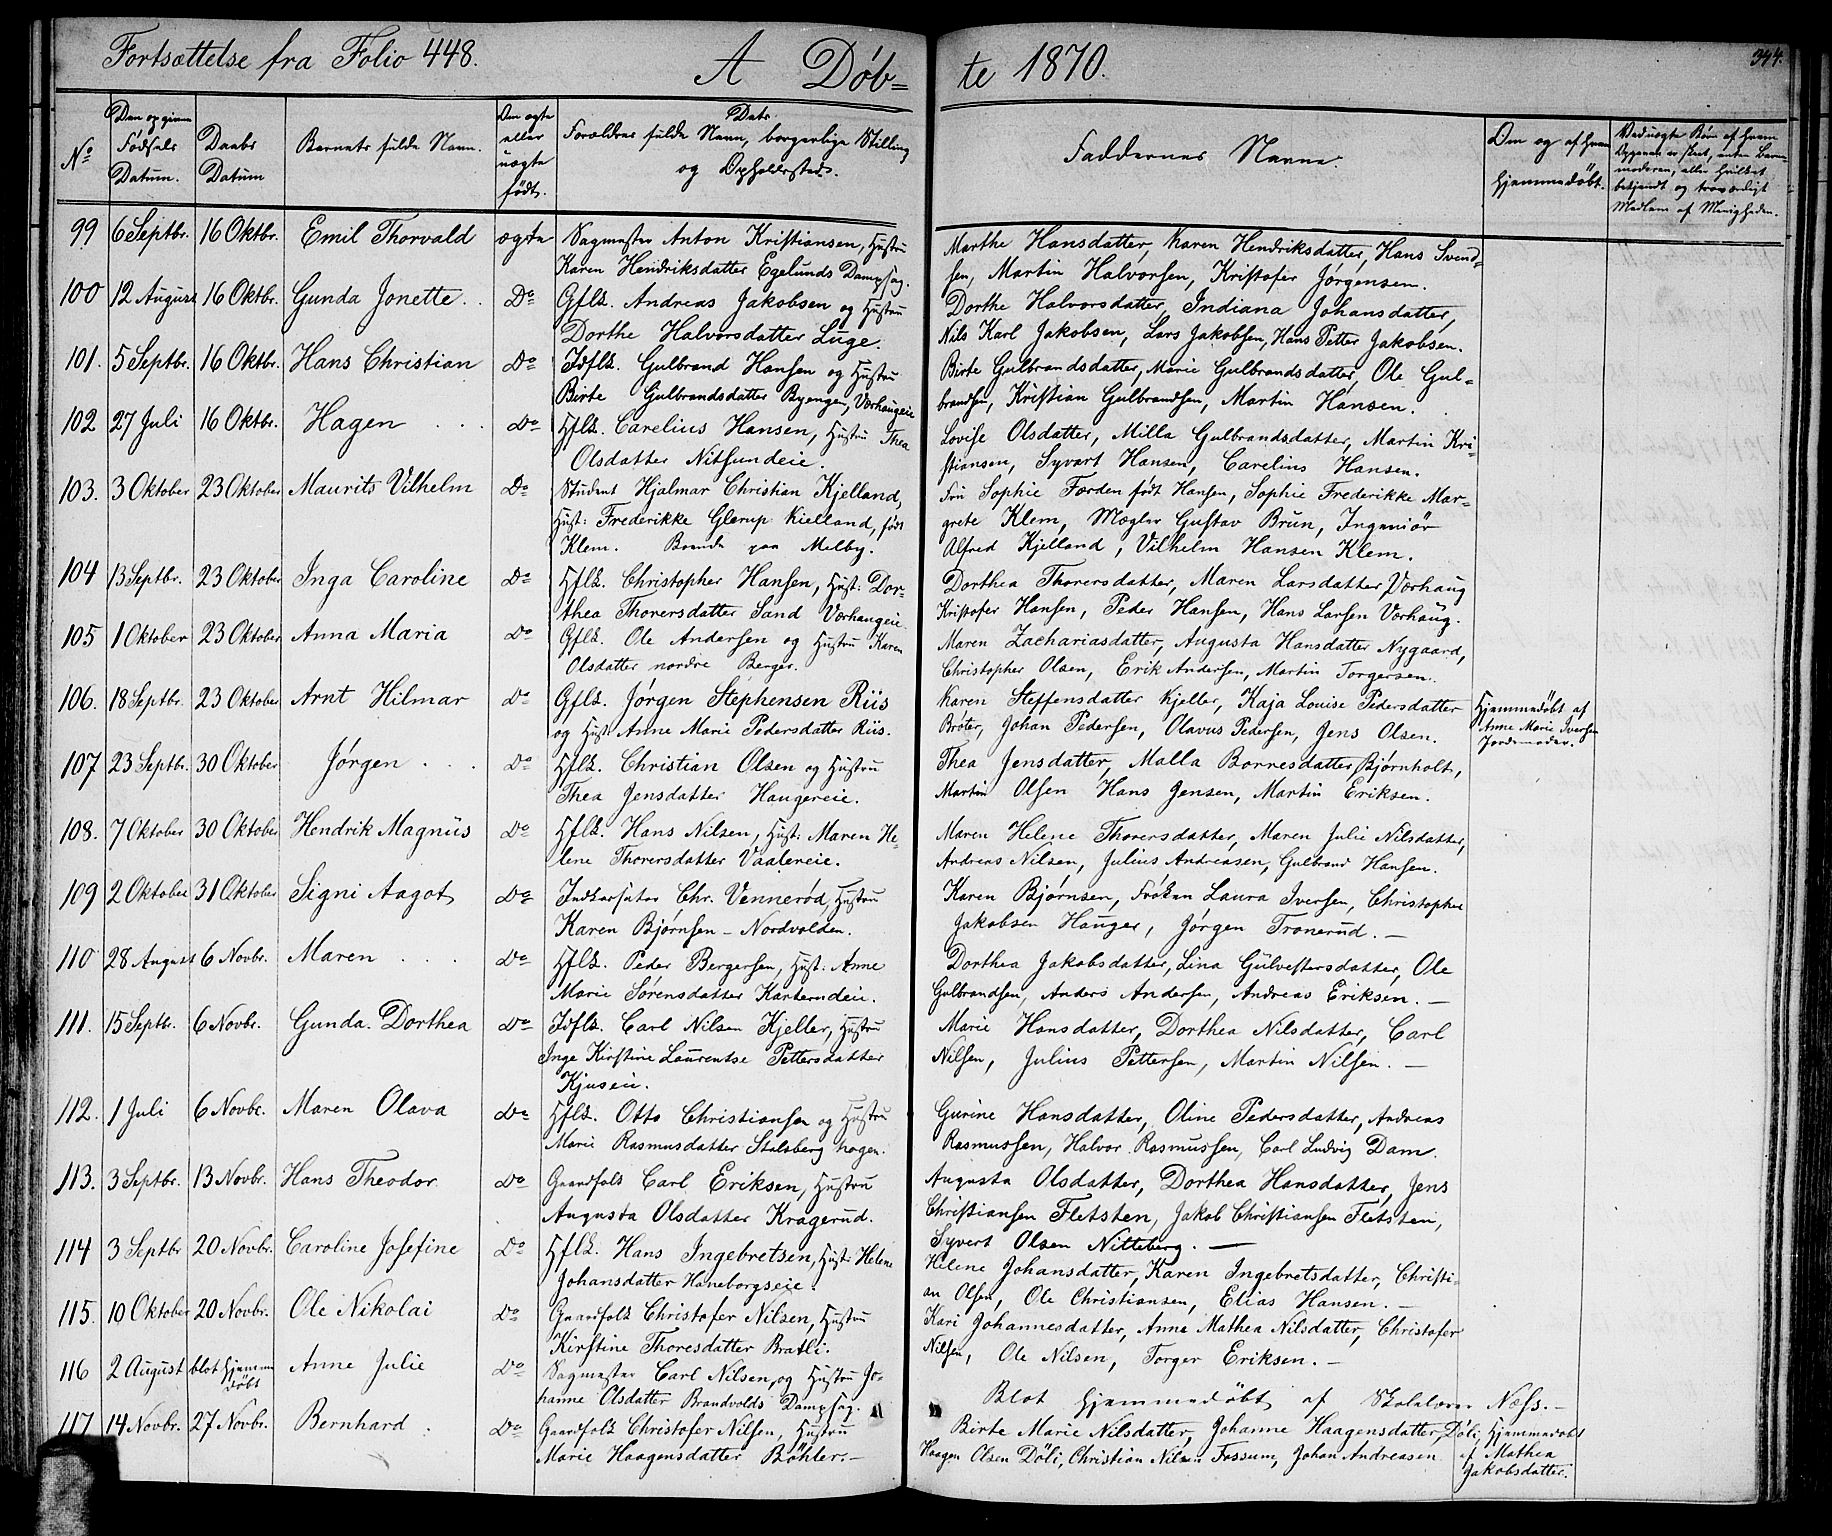 Fortsættelse fra Folio 448.
A Døb=
te 1870.
344.
No
Den opgivne Fødsels Datum.
Daabs Datum
Barnets fulde Navn.
Om ægte eller uægte født.
Forældres fulde Navn, Dets borgerlige Stilling og Opholdssted.
Faddernes Navne.
Om og af hvem hjemmedøbt.
99 6 Septbr. 16 Oktbr. Emil Thorvald ægte Sagmester Anton Kristiansen, Hustru
Karen Hendriksdatter Egelunds Dampsag.
Marthe Hansdatter, Karen Hendriksdatter, Hans Svend-
sen, Martin Halvorsen, Kristofer Jørgensen.
100 12 August 16 Oktbr. Gunda Jonette. Do Gflk. Andreas Jakobsen og Hustru
Dorthe Halvorsdatter Luge.
Dorthe Halvorsdatter, Indiana Johansdatter,
Nils Karl Jakobsen, Lars Jakobsen, Hans Petter Jakobsen.
101. 5 Septbr. 16 Oktbr. Hans Christian Do Idflk. Gulbrand Hansen og Hustru
Birte Gulbrandsdatter Byengen, Vorhaugeie
Birte Gulbrandsdatter, Marie Gulbrandsdatter, Ole Gul-
brandsen, Kristian Gulbrandsen, Martin Hansen.
102 27 Juli 16 Oktbr. Hagen Do Hflk. Carelius Hansen, Hustru Thea
Olsdatter Nitsundeie.
Lovise Olsdatter, Milla Gulbrandsdatter, Martin Kri-
stiansen, Syvart Hansen, Carelius Hansen.
103. 3 Oktober 23 Oktober Maurits Vilhelm Do Student Hjalmar Christian Kjelland,
Hust: Frederikke Glerup Kielland, født
Klem. Boende paa Melby.
Fru Sophie Førden født Hansen, Sophie Frederikke Mar-
grete Klem, Mægler Gustav Brun, Ingeniør
Alfred Kjelland, Vilhelm Hansen Klem.
104 13 Septbr. 23 Oktober Inga Caroline Do Hflk. Christopher Hansen, Hust: Dor-
thea Thorersdatter Sand Vorhaugeie
Dorthea Thorersdatter, Maren Larsdatter Vorhaug
Kristofer Hansen, Peder Hansen, Hans Larsen Vorhaug.
105 1 Oktober 23 Oktober Anna Maria Do Gflk. Ole Andersen og Hustru Karen
Olsdatter nordre Berger.
Maren Zachariasdatter, Augusta Hansdatter Nygaard,
Christopher Olsen, Erik Andersen, Martin Torgersen.
106. 18 Septbr. 23 Oktober Arnt Hilmar Do Gflk. Jørgen Stephensen Riis
og Hust: Anne Marie Pedersdatter Riis.
Karen Steffensdatter Kjeller, Kaja Louise Pedersdatter
Brøter, Johan Pedersen, Olavus Pedersen, Jens Olsen.
Hjemmedøbt af
Anne Marie Iversen
Jordemoder.
107 23 Septbr. 30 Oktober Jørgen Do Hflk. Christian Olsen og Hustru
Thea Jensdatter Haugereie.
Thea Jensdatter, Malla Borresdatter Bjørnholt,
Martin Olsen Hans Jensen, Martin Eriksen.
108. 7 Oktober 30 Oktober Hendrik Magnus Do Hflk. Hans Nilsen, Hust: Maren He-
lene Thorersdatter Vaalereie.
Maren Helene Thorersdatter, Maren Julie Nilsdatter,
Andreas Nilsen, Julius Andreasen, Gulbrand Hansen.
109 2 Oktober 31 Oktober Signi Aagot Do Inkassator Chr. Vennerød, Hustru
Karen Bjørnsen - Nordvolden.
Karen Bjørnsen, Frøken Laura Iversen, Christopher
Jakobsen Hauger, Jørgen Tronerud. —
110 28 August 6 Novbr. Maren Do Hflk. Peder Bergersen, Hust: Anne
Marie Sørensdatter Karterudeie.
Dorthea Jakobsdatter, Lina Gulvestersdatter, Ole
Gulbrandsen, Anders Andersen, Andreas Eriksen. —
111. 15 Septbr. 6 Novbr. Gunda. Dorthea Do Idflk. Carl Nilsen Kjeller, Hustru
Inge Kirstine Laurentse Pettersdatter
Kjuseie.
Marie Hansdatter, Dorthea Nilsdatter, Carl
Nilsen, Julius Pettersen, Martin Nilsen. —
112. 1 Juli 6 Novbr. Maren Olava Do Hflk. Otto Christiansen og Hustru
Marie Rasmusdatter Stalsberg hagen.
Gurine Hansdatter, Oline Pedersdatter, Andreas
Rasmussen, Halvor Rasmussen, Carl Ludvig Dam.
113. 3 Septbr. 13 Novbr. Hans Theodor Do Gaardfolk Carl Eriksen, Hustru
Augusta Olsdatter Kragerud.
Augusta Olsdatter, Dorthea Hansdatter, Jens
Christiansen Fletsten, Jakob Christiansen Fletsten,
Syvert Olsen Nitteberg. —
114 3 Septbr 20 Novbr. Caroline Josefine Do Hflk. Hans Ingebretsen, Hust: Helene
Johansdatter Haneborgseie.
Helene Johansdatter, Karen Ingebretsdatter, Christi-
an Olsen, Ole Christiansen, Elias Hansen. —
115. 10 Oktober 20 Novbr. Ole Nikolai Do Gaardfolk Christofer Nilsen, Hustru
Kirstine Thoresdatter Bratli.
Kari Johannesdatter, Anne Mathea Nilsdatter, Christofer
Nilsen, Ole Nilsen, Torger Eriksen. —
116 2 August blot hjemmedøbt Anne Julie Do Sagmester Carl Nilsen, og Hustru Jo-
hanne Olsdatter Brandvolds Dampsag.
Blot hjemmedøbt af Skolelærer Næss. —
117 14 Novbr. 27 Novbr. Bernhard Do Gaardfolk Christofer Nilsen, Hustru
Marie Haagensdatter Bøhler. —
Birte Marie Nilsdatter, Johanne Haagensdatter, Døli,
Haagen Olsen Døli, Christian Nilsen Fossum, Johan Andreasen
Hjemmedøbt
af Mathea
Jakobsdatter.